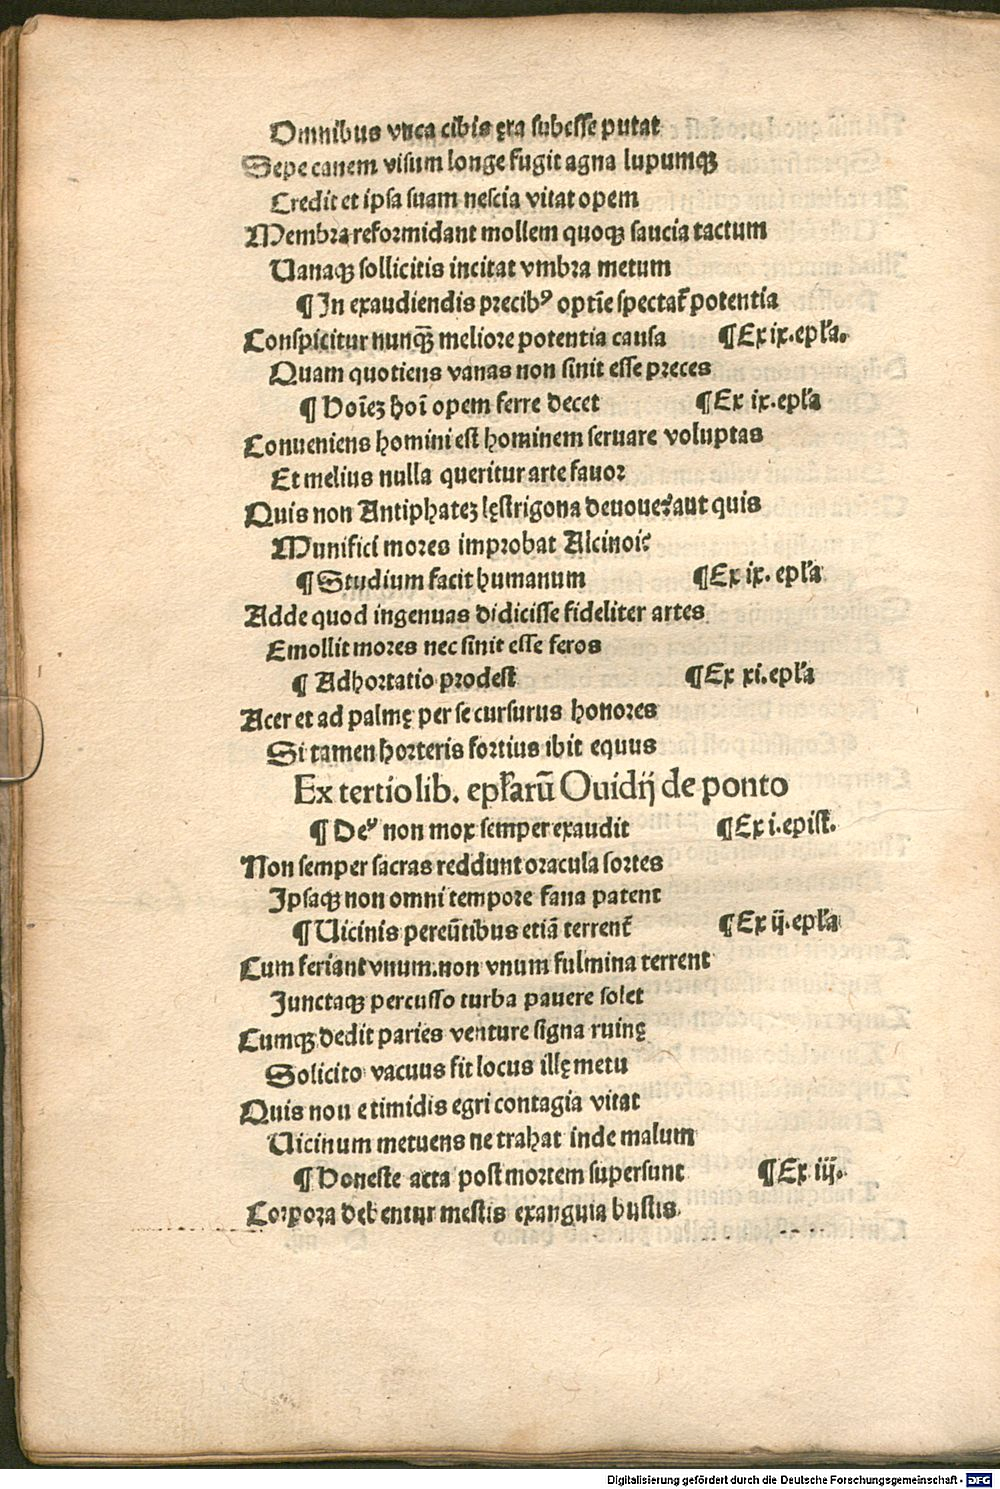 Omnibus vnca cibis ęra subesse putat
Sepe canem visum longe fugit agna lupumqꝫ
Credit et ipsa suam nescia vitat opem
Membra reformidant mollem quoqꝫ saucia tactum
Uanaqꝫ sollicitis incitat vmbra metum
¶ In exaudiendis precibꝰ optīe spectat᷑ potentia
Conspicitur nunqꝫ̄ meliore potentia causa ¶ Ex ix. epl̄a.
Quam quotiens vanas non sinit esse preces
¶ Hoīeꝫ hoī opem ferre decet ¶ Ex ix. epl̄a
Conueniens homini est hominem seruare voluptas
Et melius nulla queritur arte fauor
Quis non Antiphateꝫ lęstrigona deuouet? aut quis
Munifici mores improbat Alcinoi?
¶ Studium facit humanum ¶ Ex ix. epl̄a
Adde quod ingenuas didicisse fideliter artes
Emollit mores nec sinit esse feros
¶ Adhortatio prodest ¶ Ex xi. epl̄a
Acer et ad palmę per se cursurus honores
Si tamen horteris fortius ibit equus
Ex tertio lib. epl̄arū Ouidij de ponto
¶ Deꝰ non mox semper exaudit ¶ Ex i. epist̄.
Non semper sacras reddunt oracula sortes
Ipsaqꝫ non omni tempore fana patent
¶ Uicinis pereūtibus etiā terrent᷑ ¶ Ex ij. epl̄a
Cum feriant vnum. non vnum fulmina terrent
Junctaqꝫ percusso turba pauere solet
Cumqꝫ dedit paries venture signa ruinę
Solicito vacuus fit locus illę metu
Quis non e timidis egri contagia vitat
Uicinum metuens ne trahat inde malum
¶ Honeste acta post mortem supersunt ¶ Ex iij.
Corpora debentur mestis exanguia bustis
Digitalisierung gefördert durch die Deutsche Forschungsgemeinschaft - DFG